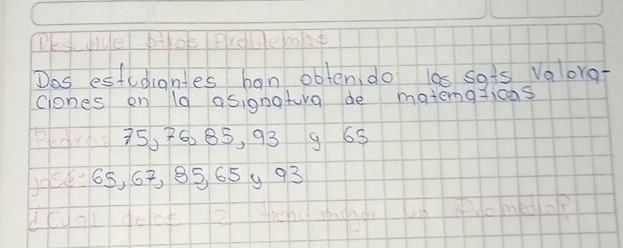 Resuelve otros problemas
Dos estudiantes han obtenido las sgts valora-
ciones en la asignatura de matematicas
Pedro: 75, 76, 85, 93 y 65
José: 65, 67, 85, 65 y 93
¿Cual de los 2 tiene mayor un promedio?